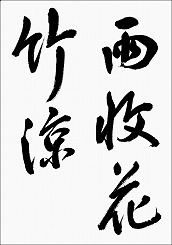 雨收花
竹涼